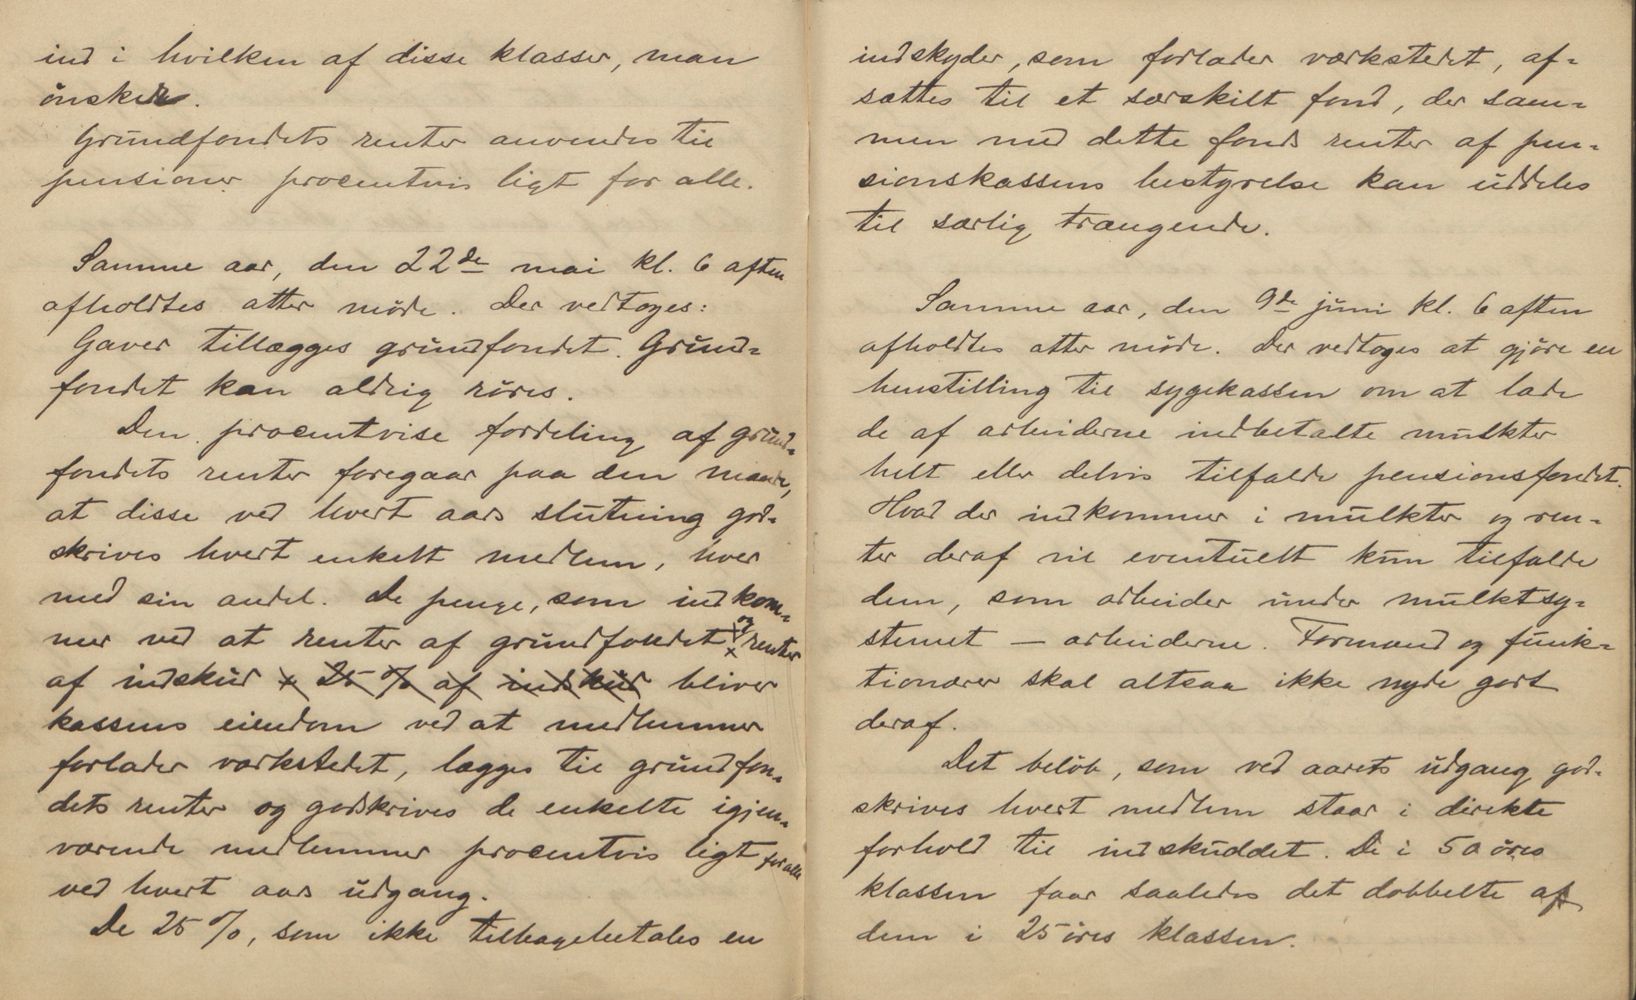 ind i hvilken af disse klasser, man
ønsker.
Grundfondets renter anvendes til
pensioner procentvis ligt for alle.
Samme aar, den 22de mai kl. 6 aften
afholdtes atter møde. Der vedtoges:
Gaver tillægges grundfondet. Grund=
fondet kan aldrig røres.
Den procentvise fordeling af grund=
fondets renter foregaar paa den maade,
at disse ved hvert aars slutning god=
skrives hvert enkelt medlem, hver
med sin andel. De penge, som indkom=
mer ved at renter af grundfondet og renter
af indskud + 25 % af indskud bliver
kassens eiendom ved at medlemmer
forlader værkstedet, lægges til grundfon=
dets renter og godskrives de enkelte igjen=
værende medlemmer procentvis ligt for alle
ved hvert aars udgang.
De 25 %, som ikke tilbagebetales en
indskyder, som forlader værkstedet, af=
sættes til et særskilt fond, der sam=
men med dette fonds renter af pen=
sionskassens bestyrelse kan uddeles
til særlig trængende.
Samme aar, den 9de juni kl. 6 aften
afholdtes atter møde. Der vedtoges at gjøre en
henstilling til sygekassen om at lade
de af arbeiderne indbetalte mulkter
helt eller delvis tilfalde pensionsfondet.
Hvad der indkommer i mulkter og ren=
ter deraf vil eventuelt kun tilfalde
dem, som arbeider under mulktsy=
stemet — arbeiderne. Formænd og funk=
tionærer skal altsaa ikke nyde godt
deraf.
Det beløb, som ved aarets udgang god=
skrives hvert medlem staar i direkte
forhold til indskuddet. De i 50 øres
klassen faar saaledes det dobbelte af
dem i 25 øres klassen.